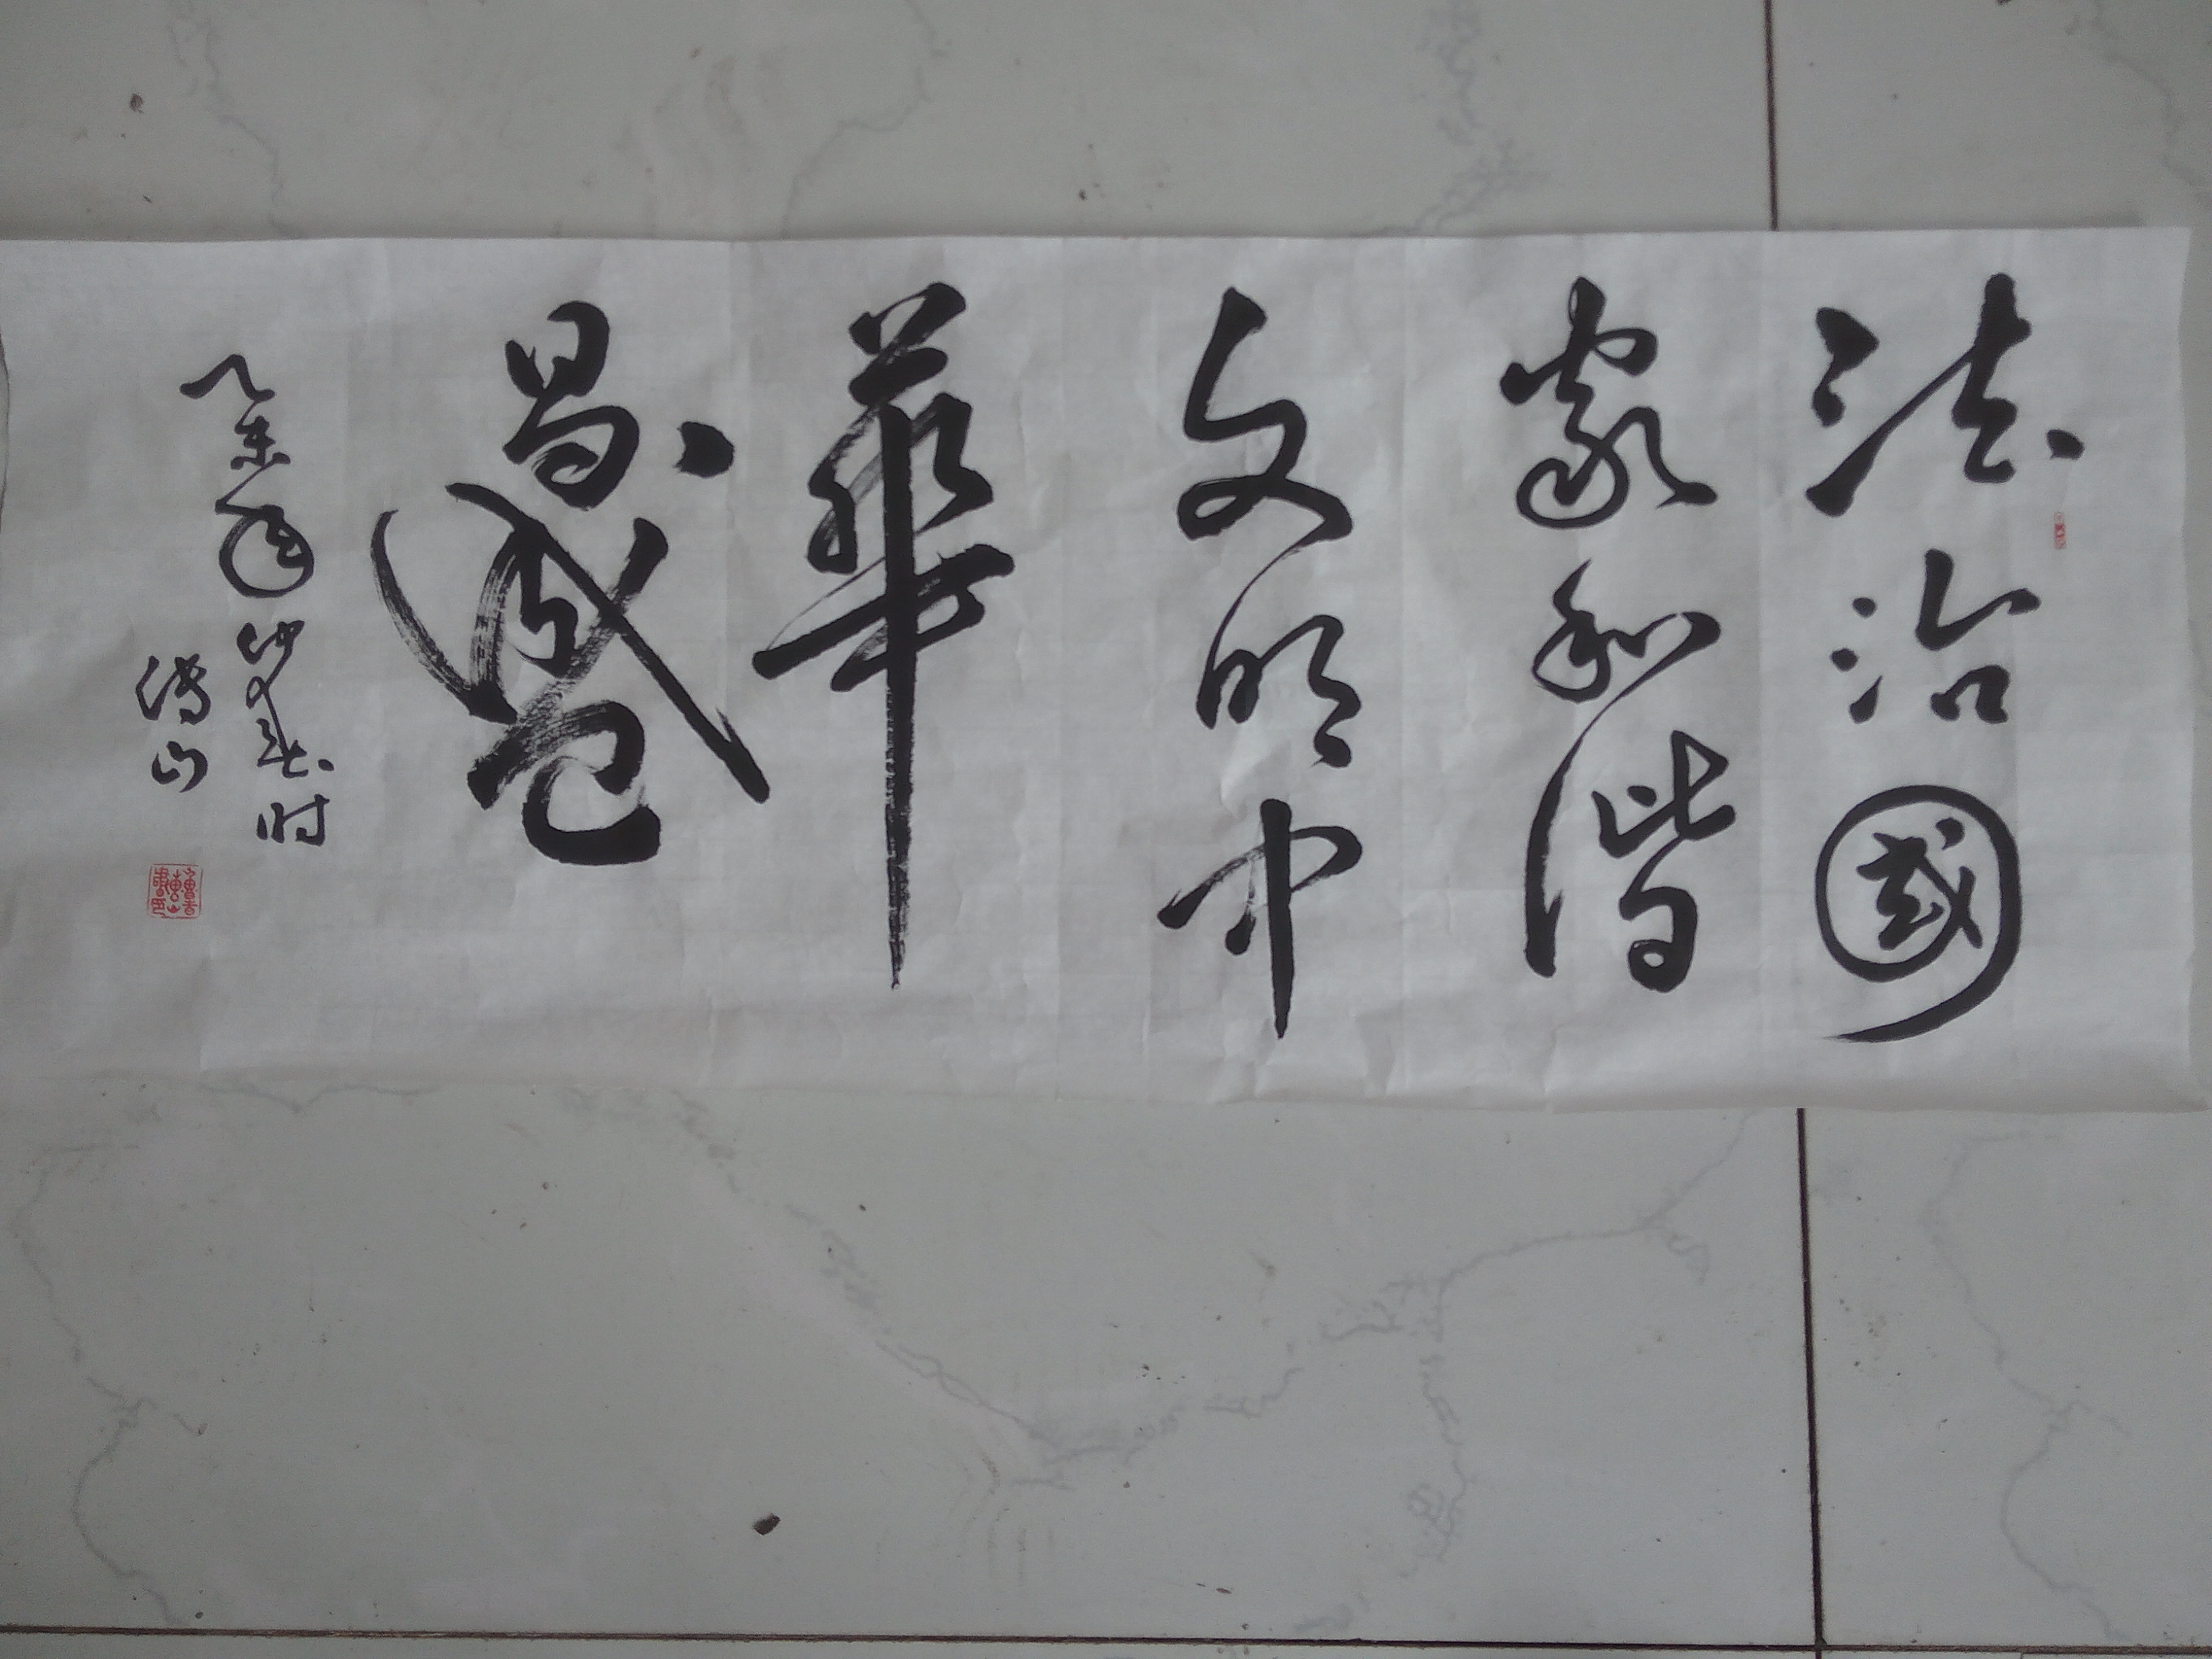 法治國
家和谐
文明中
華
昌盛
乙未年仲春时
传山